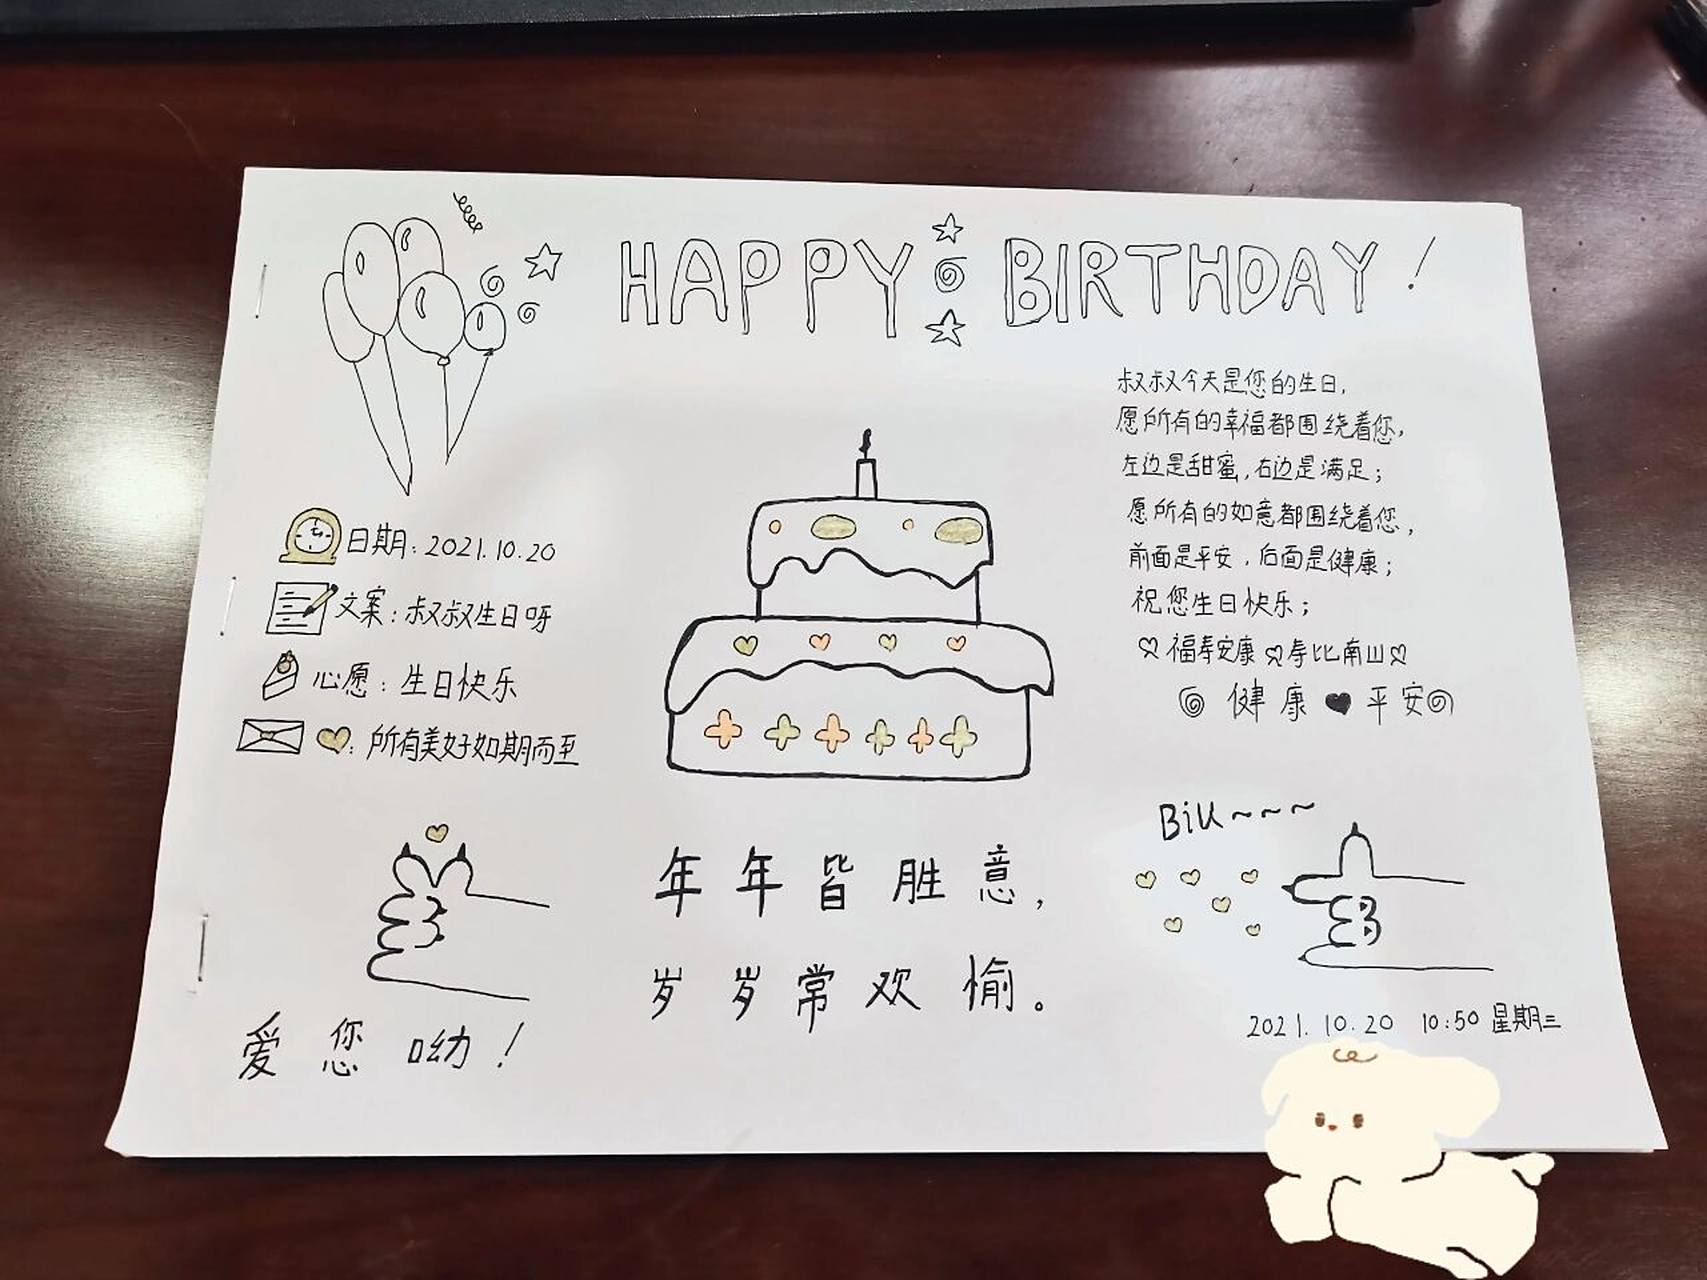 HAPPY BIRTHDAY!
叔叔今天是您的生日,
愿所有的幸福都围绕着您,
左边是甜蜜,右边是满足;
愿所有的如意都围绕着您,
前面是平安,后面是健康;
祝您生日快乐;
福寿安康 寿比南山
健康 平安
日期:2021.10.20
文案:叔叔生日呀
心愿:生日快乐
:所有美好如期而至
Biu~~~
年年皆胜意,
岁岁常欢愉。
爱您呦!
2021.10.20 10:50 星期三